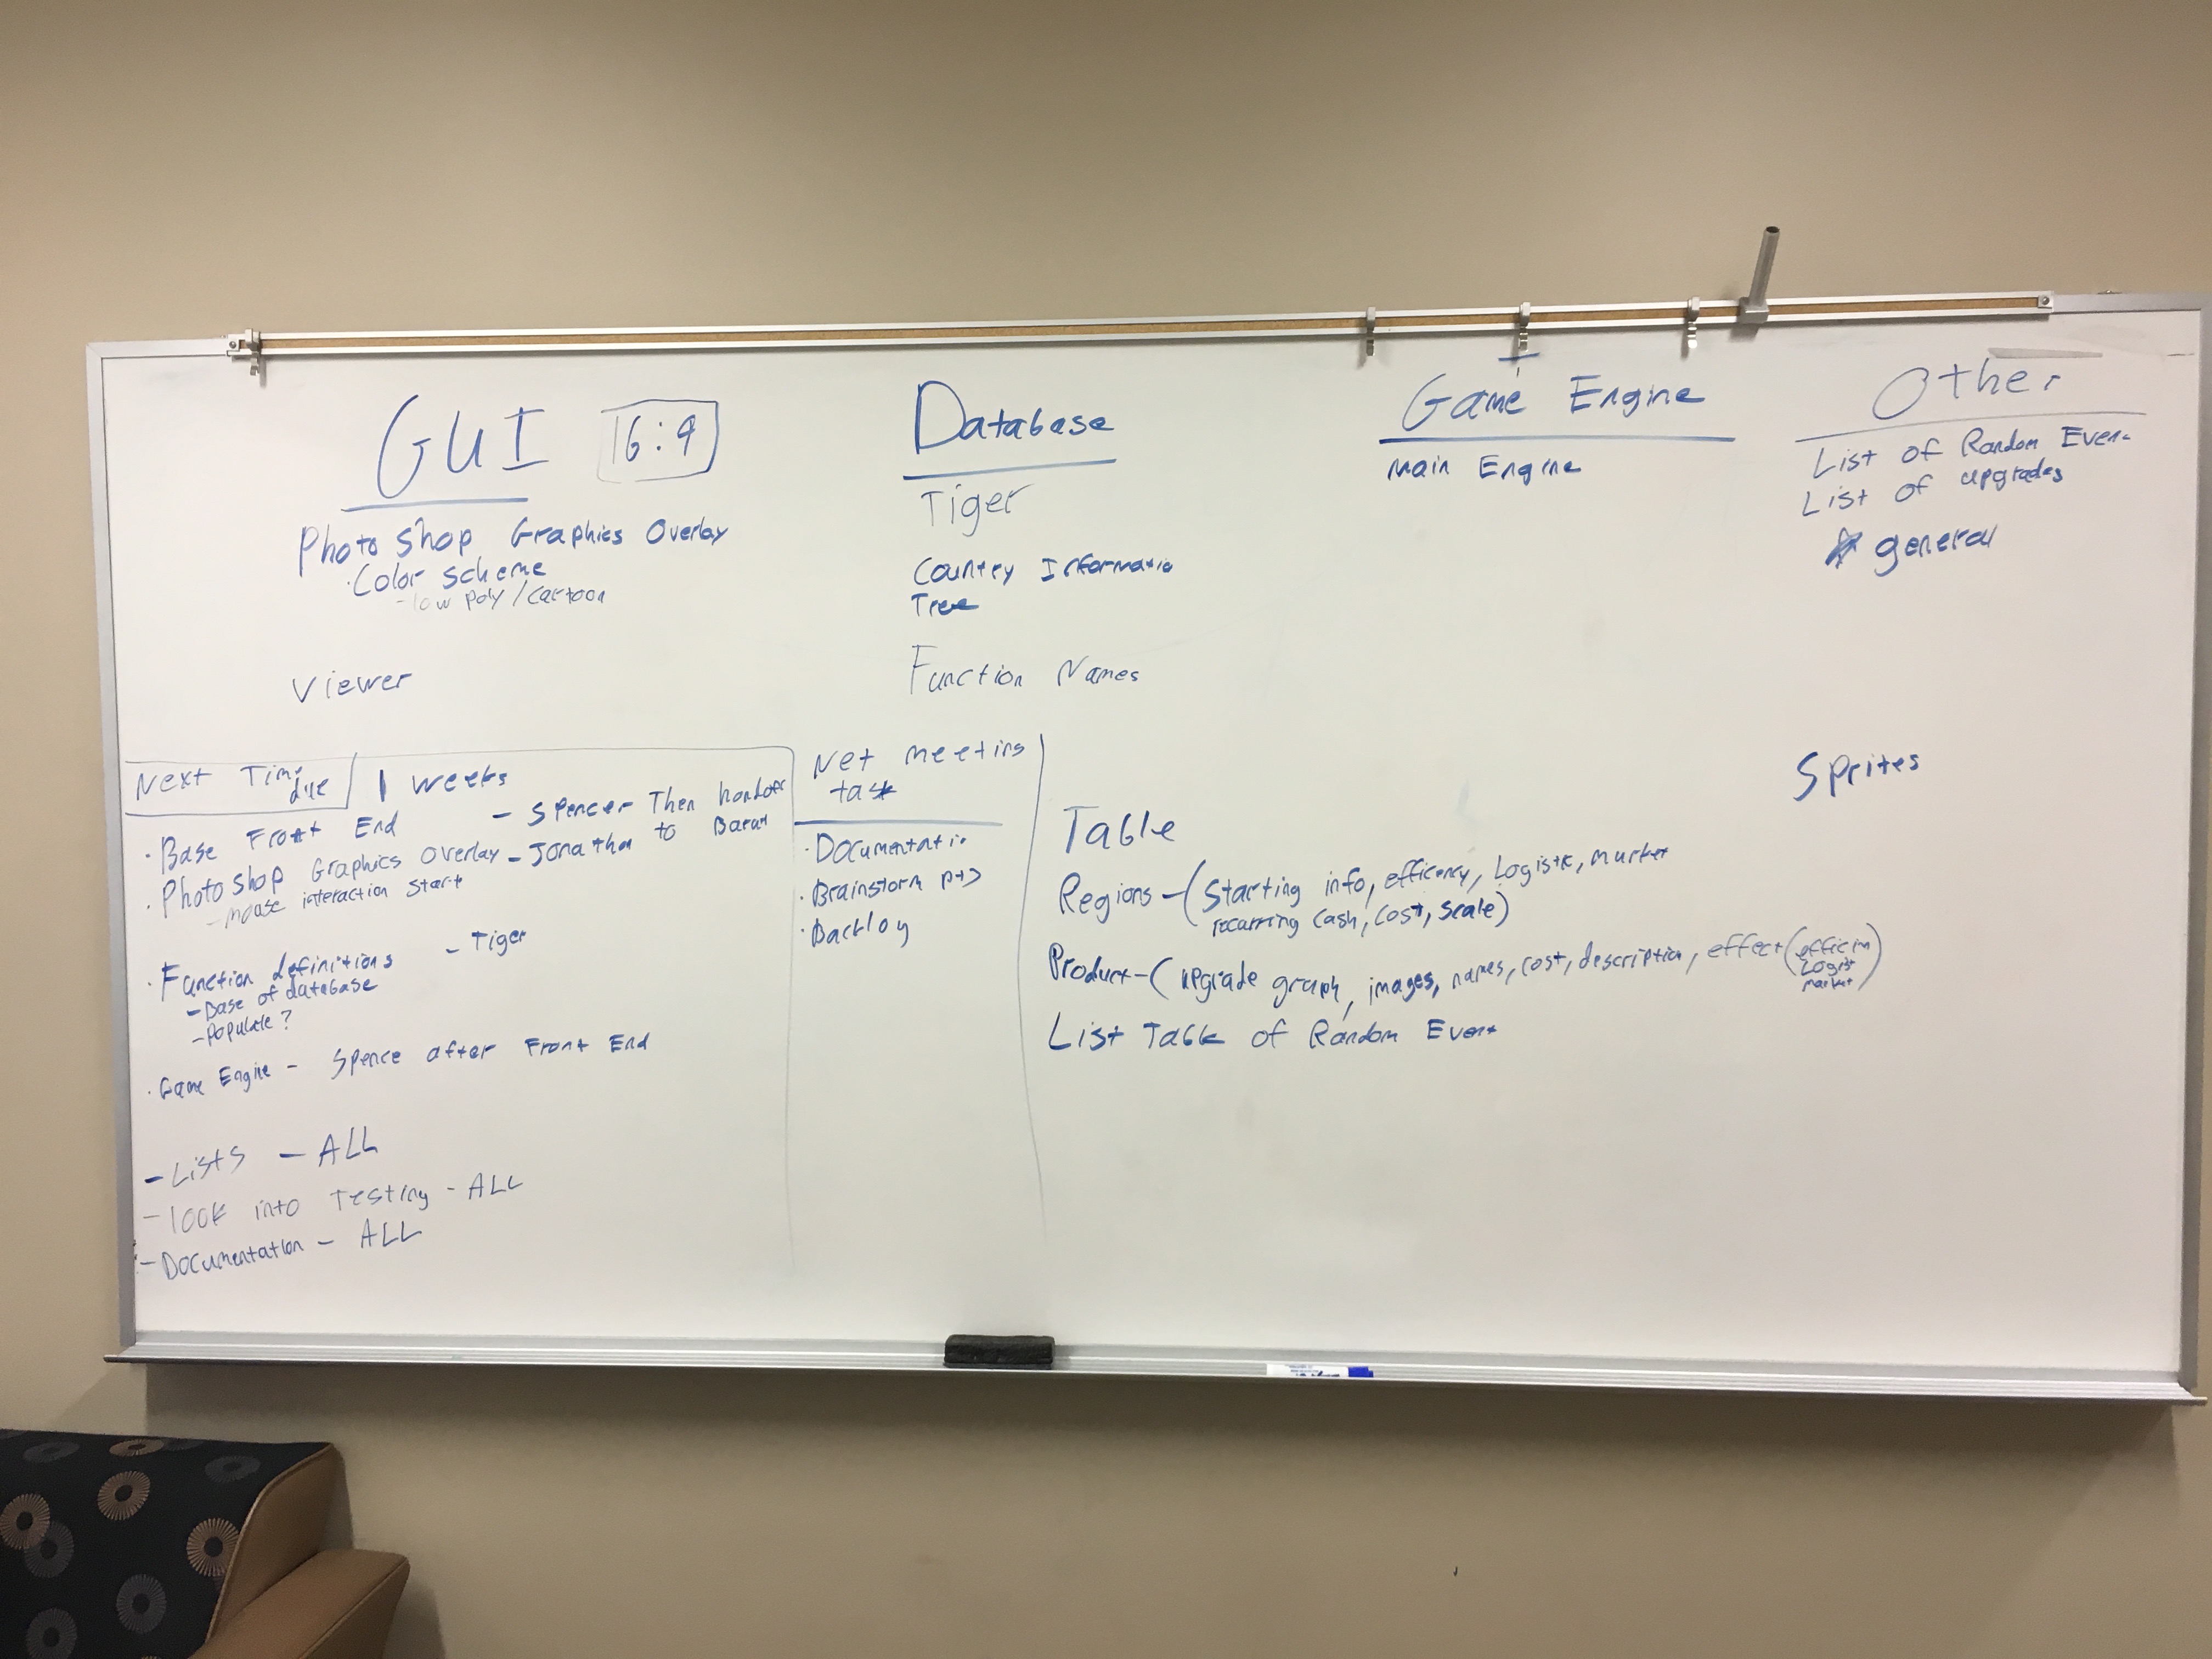 GUI 16:9
PhotoShop Graphics Overlay
·Color scheme
-low poly/cartoon
Viewer
Database
Tiger
Country Informatio
Tree
Function Names
Game Engine
Main Engine
Other
List of Random Even
List of upgrades
general
Sprites
Next Time due
1 weeks
·Base Front End - Spencer Then handoff
to Barat
·PhotoShop Graphics Overlay - Jonathan
-mouse interaction start
·Function definitions - Tiger
-Base of database
-Populate?
·Game Engine - Spence after Front End
-Lists - ALL
-look into Testing - ALL
-Documentation - ALL
Net meeting
task
·Documentatio
·Brainstorm pt
·Backlog
Table
Regions-(Starting info, efficency, Logistic, market
recurring cash, cost, scale)
Product-(upgrade graph, images, names, cost, description, effect(efficin
Logist
market)
List Table of Random Event